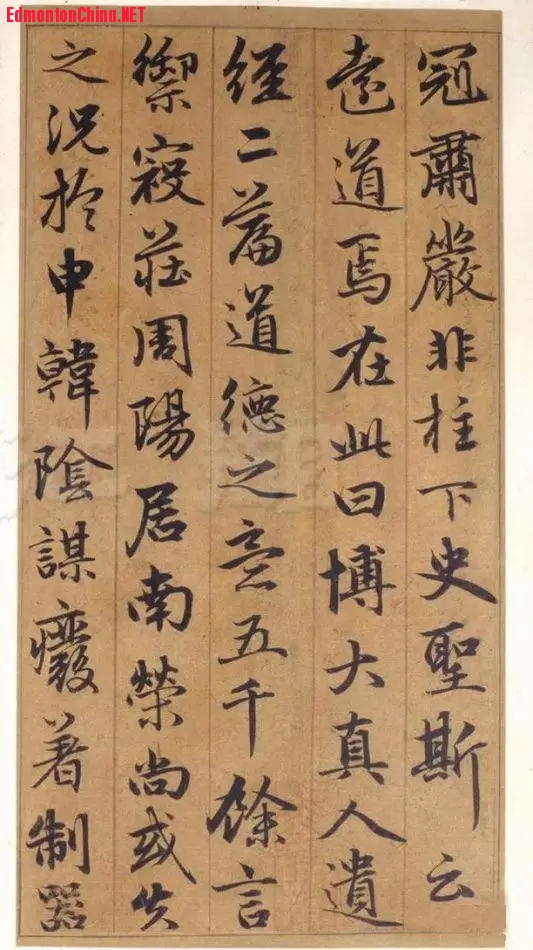 EdmontonChina.NET
冠肅嚴非柱下史聖斯云
遠道焉在此曰博大真人遺
經二篇道德之意五千餘言
禦寇莊周陽居南榮尚或失
之況於申韓陰謀癈著制器